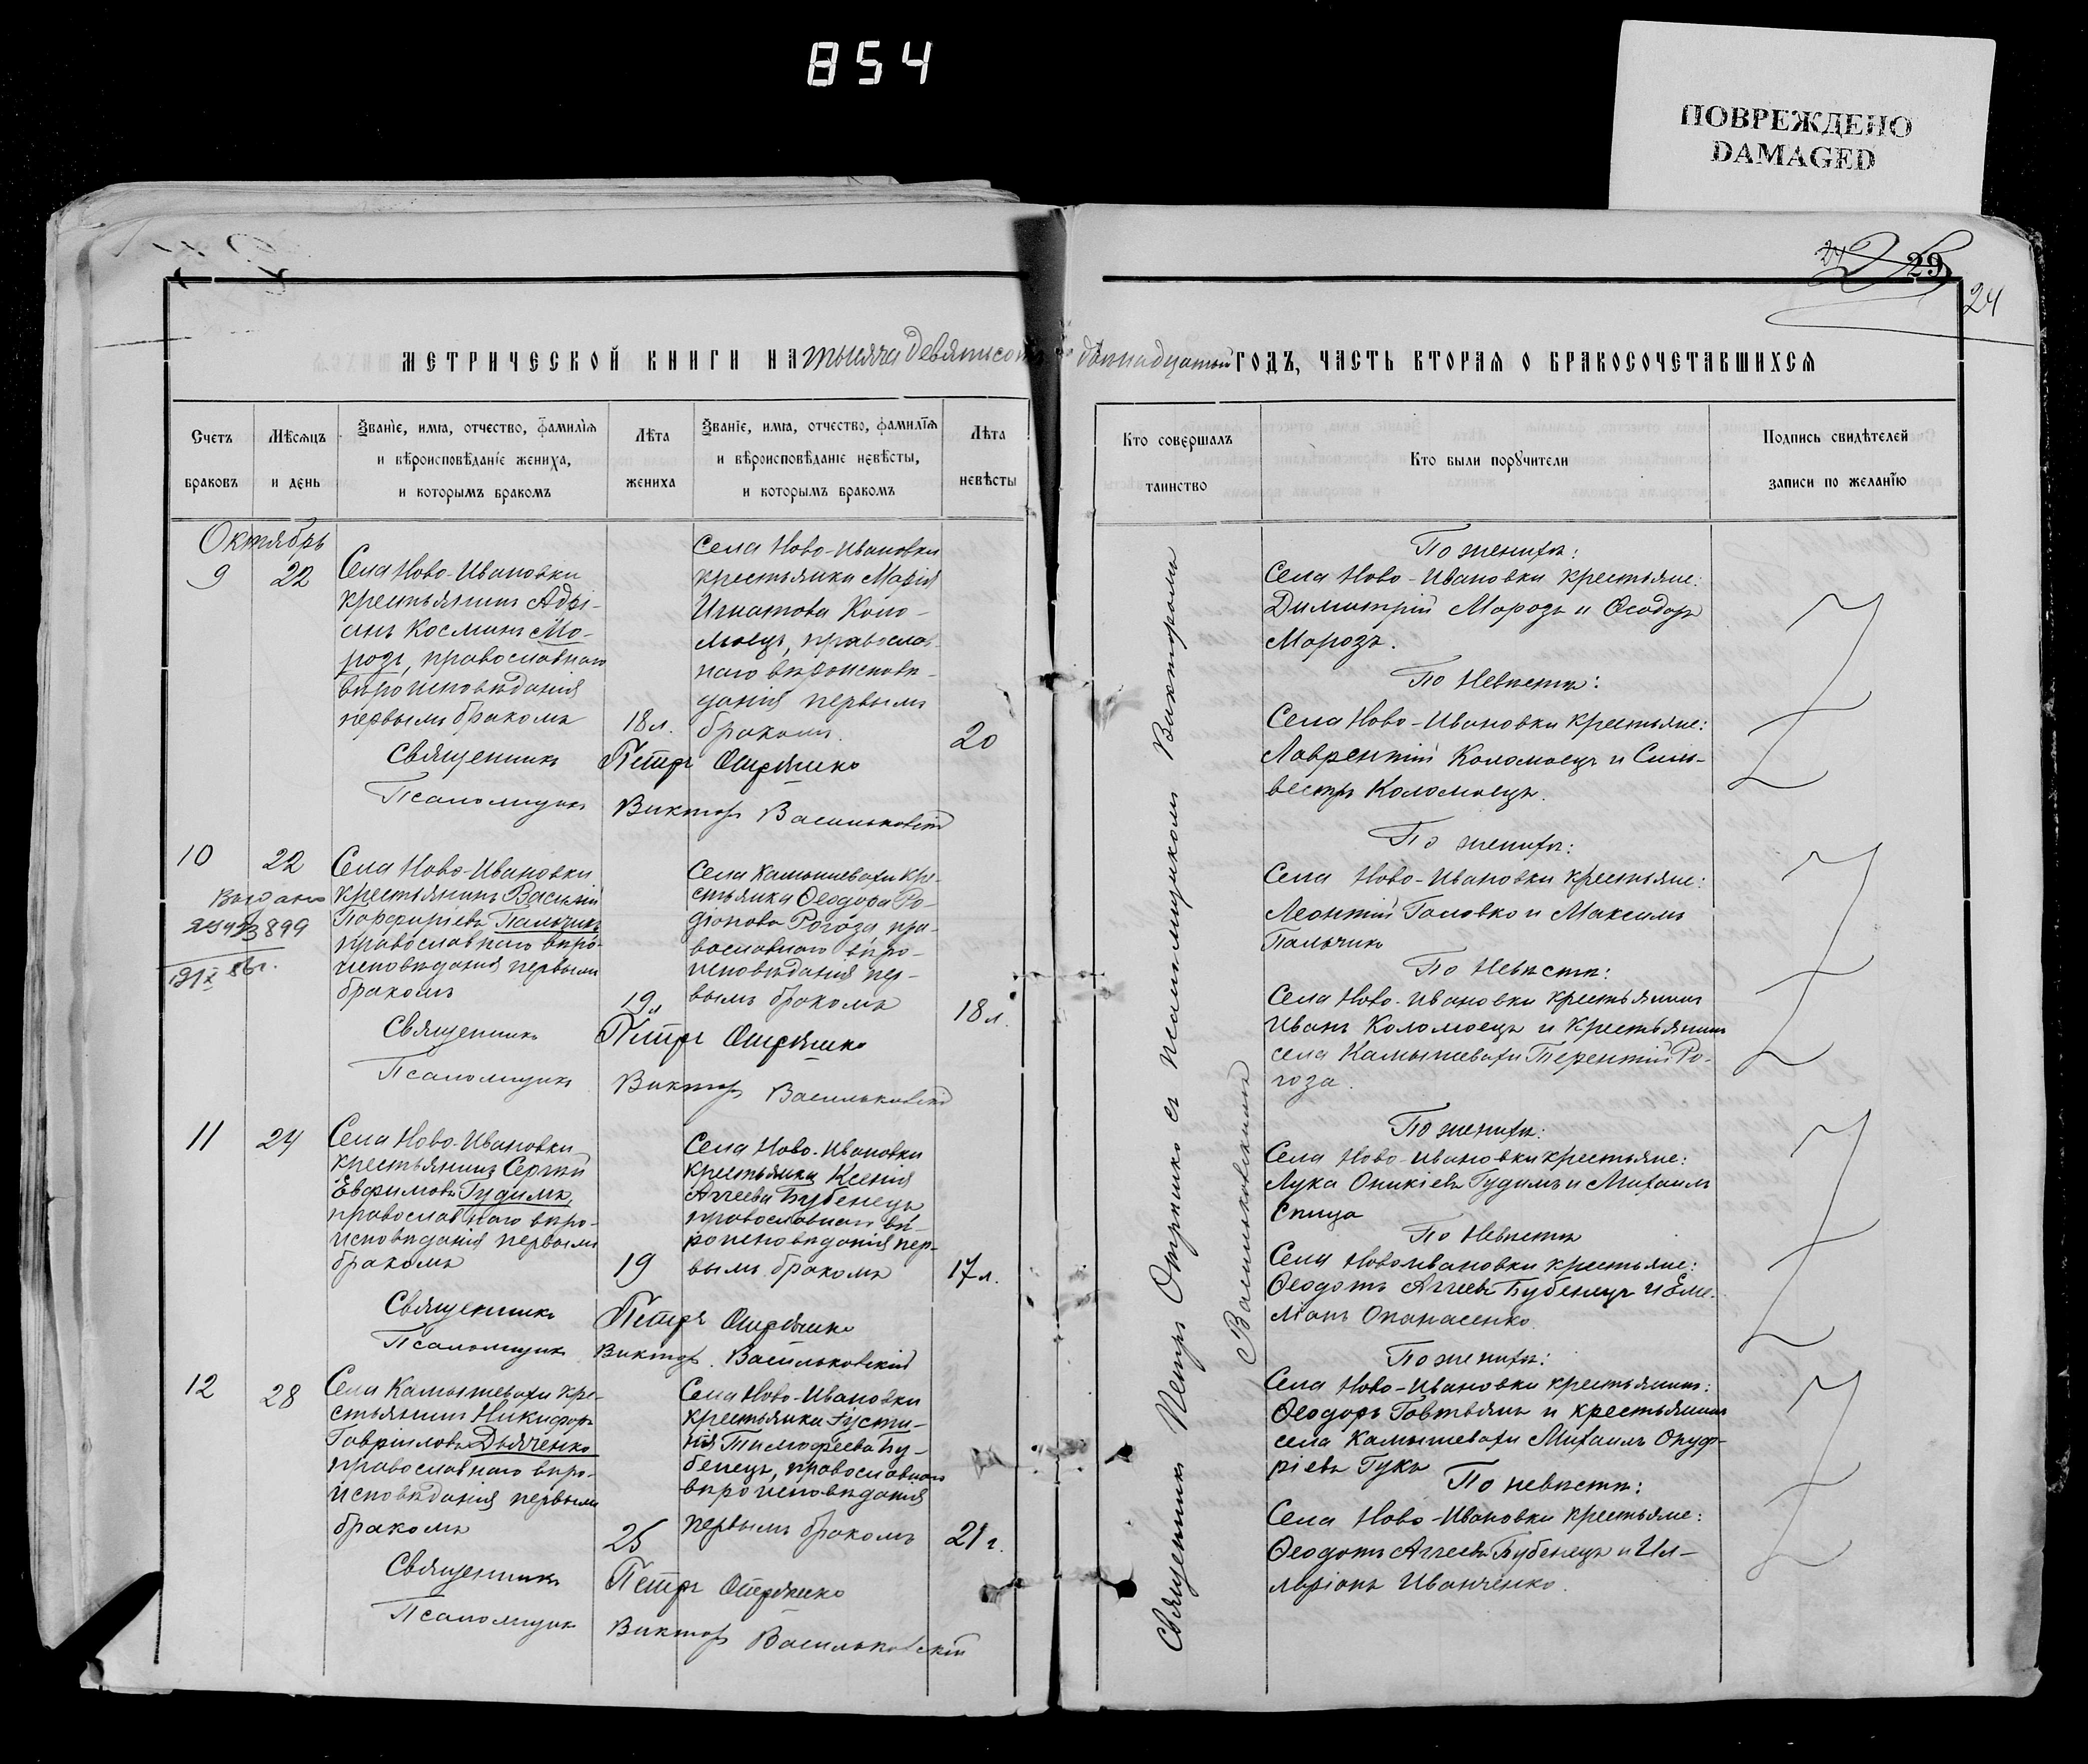 854
ПОВРЕЖДЕНО
DAMAGED
29
24
МЕТРИЧЕСКОЙ КНИГИ НА тысяча девятьсот двѣнадцатый ГОДЪ, ЧАСТЬ ВТОРАЯ О БРАКОСОЧЕТАВШИХСЯ
Счетъ браковъ
Мѣсяцъ и день
Званіе, имя, отчество, фамилія и вѣроисповѣданіе жениха, и которымъ бракомъ
Лѣта жениха
Званіе, имя, отчество, фамилія и вѣроисповѣданіе невѣсты, и которымъ бракомъ
Лѣта невѣсты
Кто совершалъ таинство
Кто были поручители
Подпись свидѣтелей записи по желанію
Октябрь
9
22
Села Ново-Ивановки
крестьянинъ Адрі-
анъ Косминъ Мо-
розъ, православнаго
вѣроисповѣданія
первымъ бракомъ
18 л.
Села Ново-Ивановки
крестьянка Марія
Игнатова Коло-
моецъ, православ-
наго вѣроисповѣ-
данія первымъ
бракомъ.
20
Священникъ Петръ
Псаломщикъ Викторъ Васильковскій
По женихѣ:
Села Ново-Ивановки крестьяне:
Димитрій Морозъ и Ѳеодоръ
Морозъ.
По невѣстѣ:
Села Ново-Ивановки крестьяне:
Лаврентій Коломоецъ и Силь-
вестръ Коломоецъ.
10
22
Выдано
Села Ново-Ивановки
крестьянинъ Василій
Порфиріевъ Пальчикъ
православнаго вѣро-
исповѣданія первымъ
бракомъ
19 л
Села Камышевахи кре-
стьянка Ѳеодора Ро-
діонова Рогоза пра-
вославнаго вѣро-
исповѣданія пер-
вымъ бракомъ
18 л.
Священникъ Петръ
Псаломщикъ Викторъ Васильковскій
По женихѣ:
Села Ново-Ивановки крестьяне:
Леонтій Головко и Максимъ
Пальчикъ
По невѣстѣ:
Села Ново-Ивановки крестьянинъ
Иванъ Коломоецъ и крестьянинъ
села Камышевахи Терентій Ро-
гоза.
11
24
Села Ново-Ивановки
крестьянинъ Сергій
Евфимовъ Гудимъ,
православнаго вѣро-
исповѣданія первымъ
бракомъ
19
Села Ново-Ивановки
крестьянка Ксенія
Аггеева Бубенецъ
православнаго вѣ-
роисповѣданія пер-
вымъ бракомъ
17 л.
Священникъ Петръ
Псаломщикъ Викторъ Васильковскій
По женихѣ:
Села Ново-Ивановки крестьяне:
Лука Оникіевъ Гудимъ и Михаилъ
Спица
По невѣстѣ
Села Ново-Ивановки крестьяне:
Ѳеодотъ Аггеевъ Бубенецъ и Еме-
ліанъ Опанасенко.
12
28
Села Камышевахи кре-
стьянинъ Никифоръ
Гавріиловъ Дьяченко
православнаго вѣро-
исповѣданія первымъ
бракомъ
25
Села Ново-Ивановки
крестьянка Густи-
нія Тимофеева Бу-
бенецъ, православнаго
вѣроисповѣданія
первымъ бракомъ
21 г.
Священникъ Петръ
Псаломщикъ Викторъ Васильковскій
По женихѣ:
Села Ново-Ивановки крестьянинъ:
Ѳеодоръ Говтвянъ и крестьянинъ
села Камышевахи Михаилъ Онуф-
ріевъ Гукъ
По невѣстѣ:
Села Ново-Ивановки крестьяне:
Ѳеодотъ Аггеевъ Бубенецъ и Ил-
ларіонъ Иванченко.
Священникъ Петръ с псаломщикомъ Викторомъ
Васильковскимъ